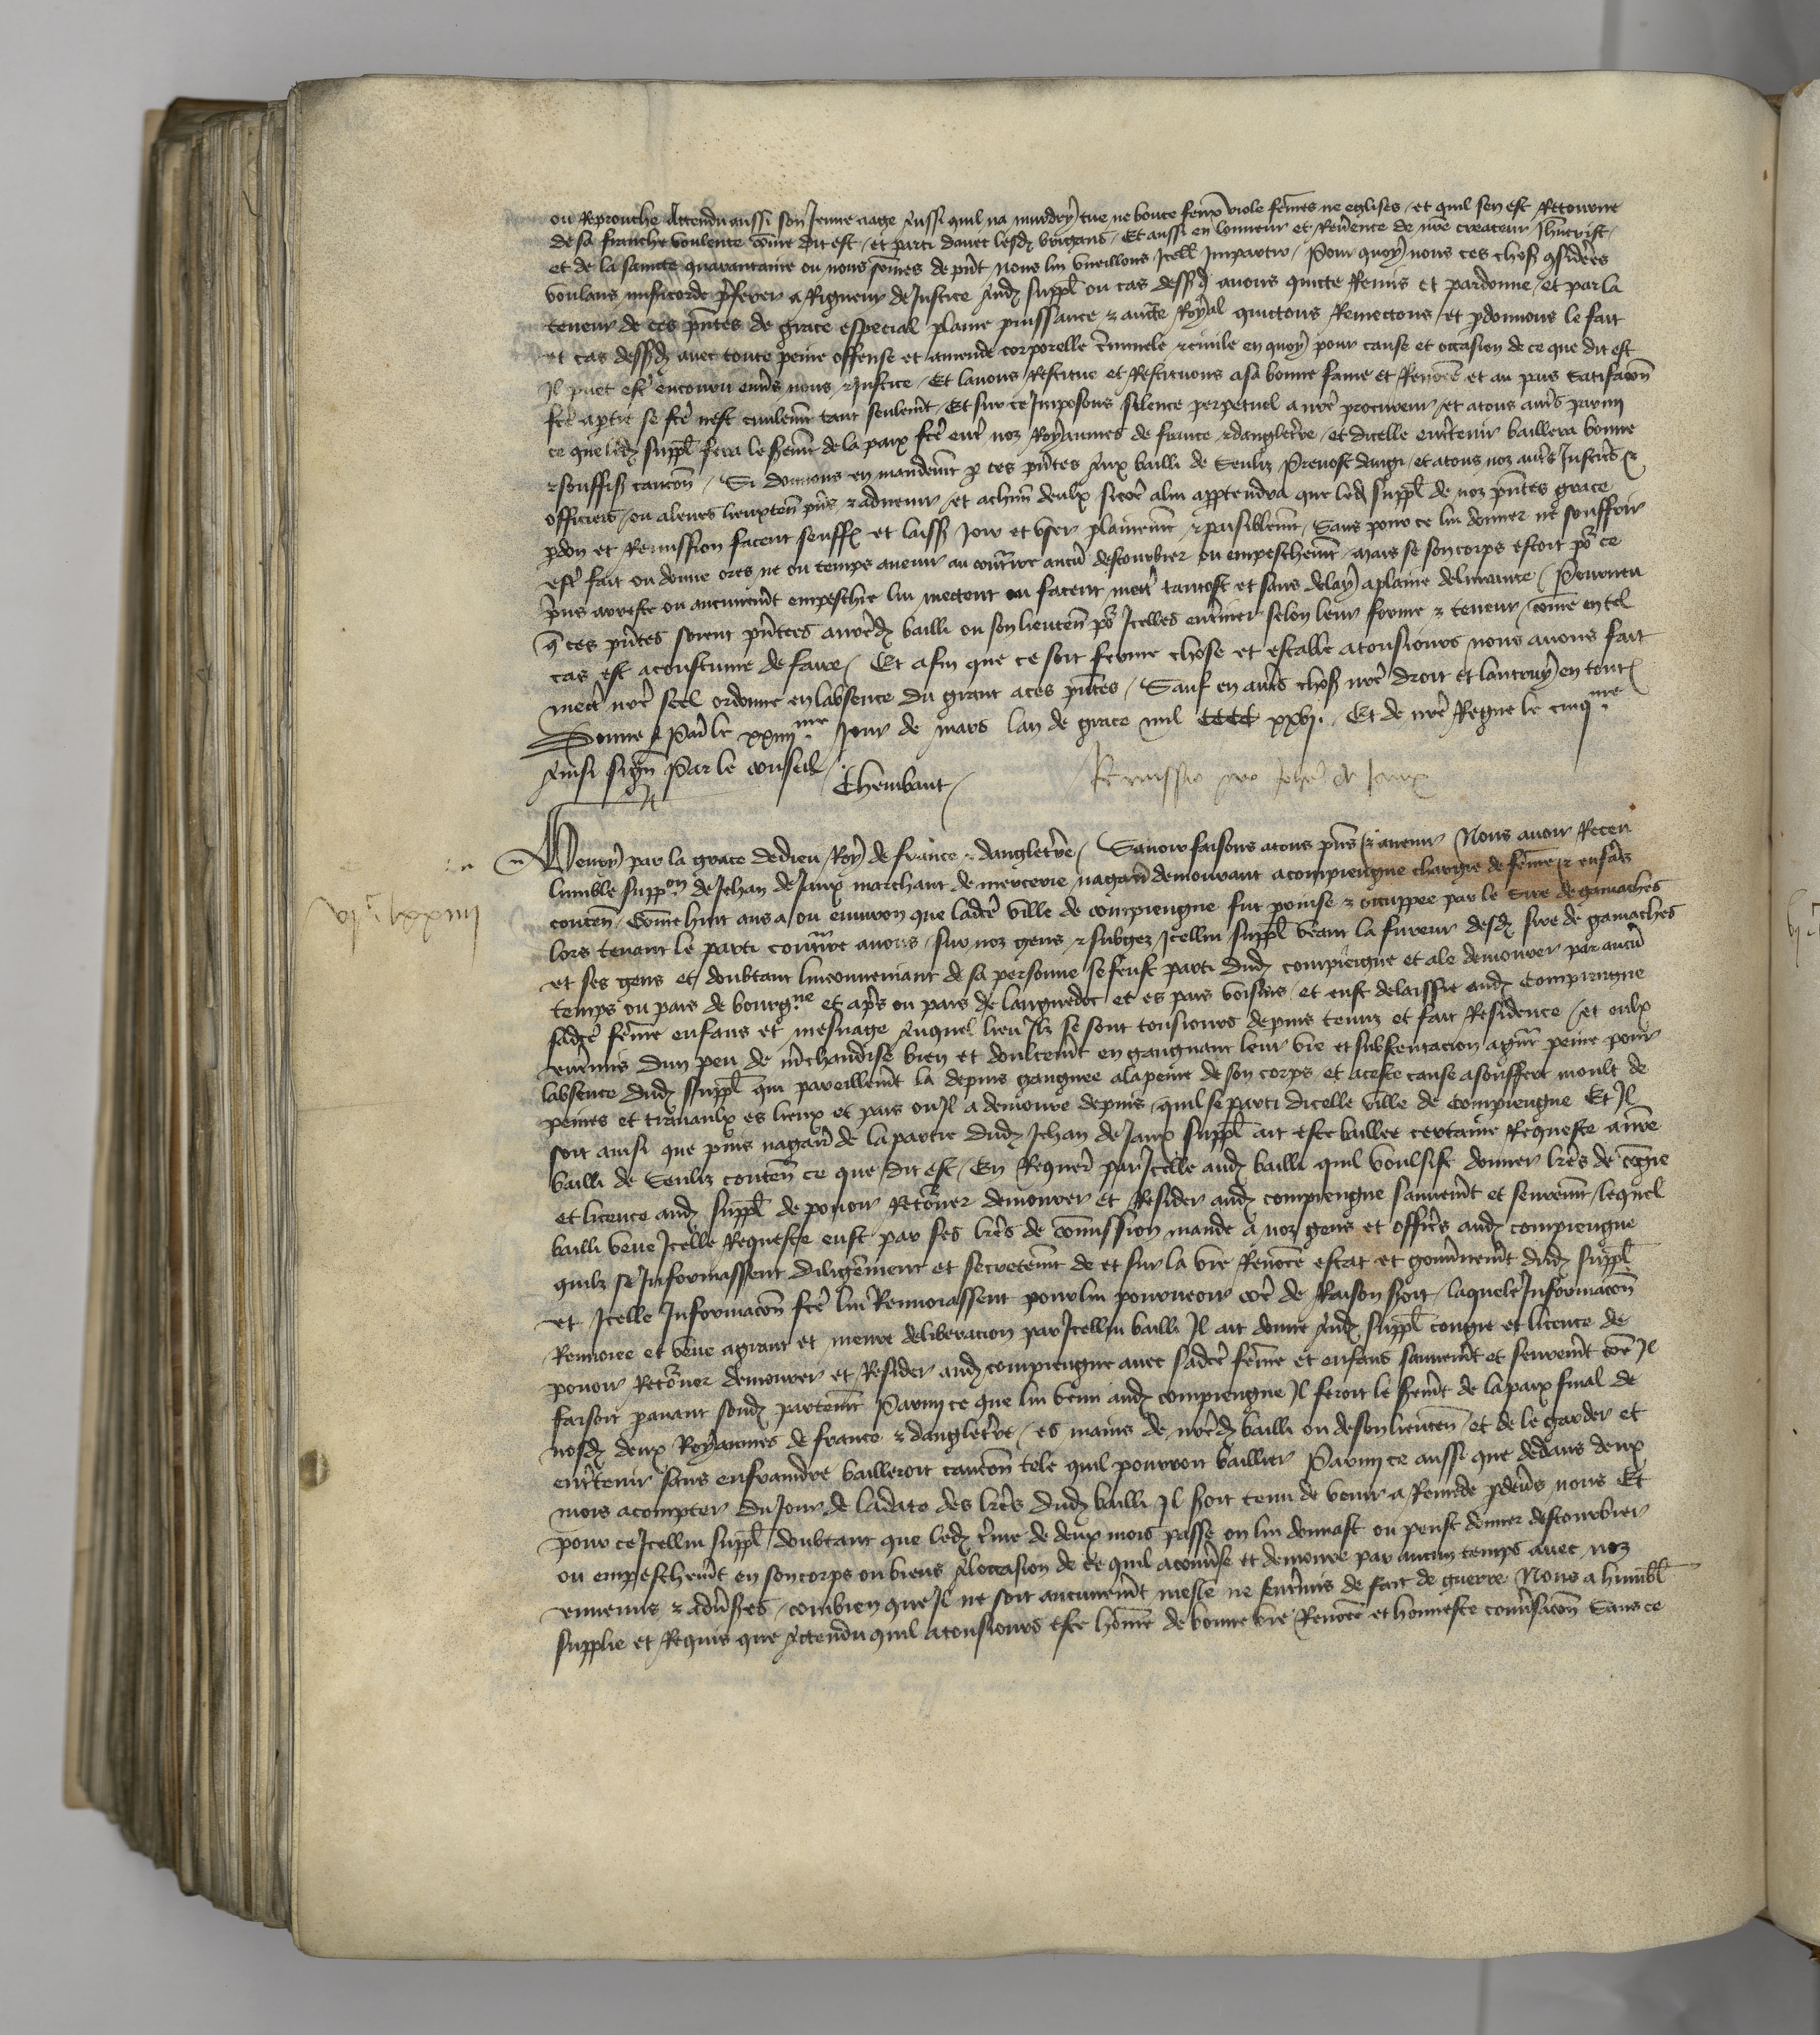 ou Reprouche Attendu aussi son Jenne aage Aussi quil na murdry tue ne boute feux viole fem̄es ne eglises / et quil sen est Retourne
de sa franche voulente com̄e dit est / et parti davec lesd brigans / Et aussi en lonneur et Reuērence de nr̄e createur Jhūcrist /
et de la saincte quarantaine ou nous som̄es de pn̄t nous lui vueillons Icelle Impartir / Pour quoy nous ces choses cōsiderees
voulans misericorde pr̄ferer a Rigueur de Justice Aud suppl̄ ou cas dessusd auons quicte Remis et pardonne / et par la
teneur de ces pn̄tes de grace especial plaine puissance & aucte Royal quictons Remectons et pdonnons le fait
et cas dessusd auec toute peine offense et amende corporelle criminele & ciuile en quoy pour cause et occasion de ce que dit est
Il puet estr̄ encouru enuers nous & Justice / Et lauons Restitue et Restituons a sa bonne fame et Renom̄ee et au pais satisfacōn
fc̄e a partie se fc̄e nest ciuilemt tant seulemt / Et sur ce Imposons silence perpetuel a nr̄e procureur / et a tous aut̄s parmy
ce que led suppl̄ fera le sermt de la paix fc̄e entr̄ noz Royaumes de france & dangleterre / et dicelle entretenir baillera bonne
& souffis caucōn / Si donnons en mandemt p ces pn̄tes Aux bailli de Senliz Preuost dangi / et a tous noz aut̄s Justic̄s &
officiers / ou a leurs lieuxten̄ pn̄s & aduenir / et a chūn deulx si cōe a lui appartendra que led suppl̄ de noz pn̄tes grace
pdon et Remission facent seuffr et laiss Joir et vser plainemt & paisiblemt / Sans pour ce lui donner ne souffrir
estr̄ fait ou donne ores ne ou temps auenir au contraire aucun destourbier ou empeschemt / mais se son corps estoit po ce
pris arreste ou aucunemt empeschie lui mectent ou facent mectr̄ tantost et sans delay a plaine deliurance / Pourueu
q̄ ces pn̄tes soient pn̄tees a nr̄ed bailli ou son lieuten̄ po Icelles enterinier selon leur forme & teneur / com̄e en tel
cas est acoustume de faire / Et afin que ce soit ferme chose et estable a tousiours nous auons fait
mectr̄ nr̄e seel ordonne en labsence du grant a ces pn̄tes / Sauf en aut̄s choses nr̄e droit et lautruy en toutes
Donne a Paris le xxiiii me Jour de mars lan de grace mil cccc xxvj. Et de nr̄e Regne le cinq me
Ainsi sign̄ Par le conseil / Thembaut /
Remissio pro Joh̄e de Jaux
Henry par la grace de dieu Roy de france & dangleterre / Sauoir faisons a tous pn̄s & a auenir Nous auoir Receu
lumble suppon de Jehan de Jaux marchant de mercerie nagair̄ demourant a compiengne chargie de fem̄e & enfās
conten̄ / Com̄e huit ans a / ou enuiron que ladc̄e ville de compiengne fut prinse & occuppee par le Sire de gamaches
lors tenant le parti contraire a nous / sur noz gens & subgez Icellui suppl̄ veant la fureur desd sire de gamaches
et ses gens et doubtant linconueniant de sa personne se feust parti dud compiengne et ale demourer par aucū
temps ou pais de bourgne et apr̄s ou pais de languedoc et es pais voisins / et eust delaissie aud Compiengne
sadc̄e fem̄e enfans et mesnage Auquel lieu Ilz se sont tousiours depuis tenuz et fait Residence / et eulx
entremis dun peu de m̄chandise bien et doulcemt en gaignant leur vie et substentacion a grāt peine pour
labsence dud suppl̄ qui pareillemt la depuis gangnee a la peine de son corps et a ceste cause a souffert moult de
peines et trauaulx es lieux et pais ou Il a demoure depuis quil se parti dicelle ville de Compiengne Et Il
soit ainsi que puis nagair̄ de la partie dud Jehan de Jaux suppl̄ ait este baillee certaine Requeste a nr̄e
bailli de Senliz conten̄ ce que dit est / En Requer̄ par Icelle aud bailli quil voulsist donner lr̄es de congie
et licence aud suppl̄ de pouoir Retourner demourer et Resider aud compiengne sauuemt et seuremt / lequel
bailli veue Icelle Requeste eust par ses lr̄es de com̄ission mande a noz gens et officrs aud compiengne
quilz se Informassent diligēment et secretemt de et sur la vie Renom̄ee estat et gouuernemt dud suppl̄
et Icelle Informacōn fc̄e lui Renuoiassent pour lui pourueoir cōe de Raison seroit / laquele Informacōn
Renuoiee et veue a grant et meure deliberacion par Icellui bailli Il ait donne Aud suppl̄ congie et licence de
pouoir Retourner demourer et Resider aud compiengne auec sadc̄e fem̄e et enfans sauuemt et seuremt cōe Il
faisoit pauant sond partemt Parmy ce que lui venu aud compiengne Il feroit le sermt de la paix final de
nosd deux Royaumes de france & dangleterre / es mains de nr̄ed bailli ou de son lieuten̄ / et de le garder et
entretenir sans enfraindre bailleroit caucōn tele quil pourroit baillier Parmy ce aussi que dedans deux
mois a compter du Jour de la date des lr̄es dud bailli Il seroit tenu de venir a Remede p deuers nous Et
pour ce Icellui suppl̄ doubtant que led t̄me de deux mois passe on lui donnast ou peust donner destourbier
ou empeschemt en son corps ou biens A loccasion de ce quil a conuerse et demoure par aucun temps auec noz
ennemis & aduersres / combien que Il ne soit aucunemt mesle ne entremis de fait de guerre Nous a humbl̄
supplie et Requis que Attendu quil a tousiours este hom̄e de bonne vie Renom̄ee et honneste conuersacōn Sans ce